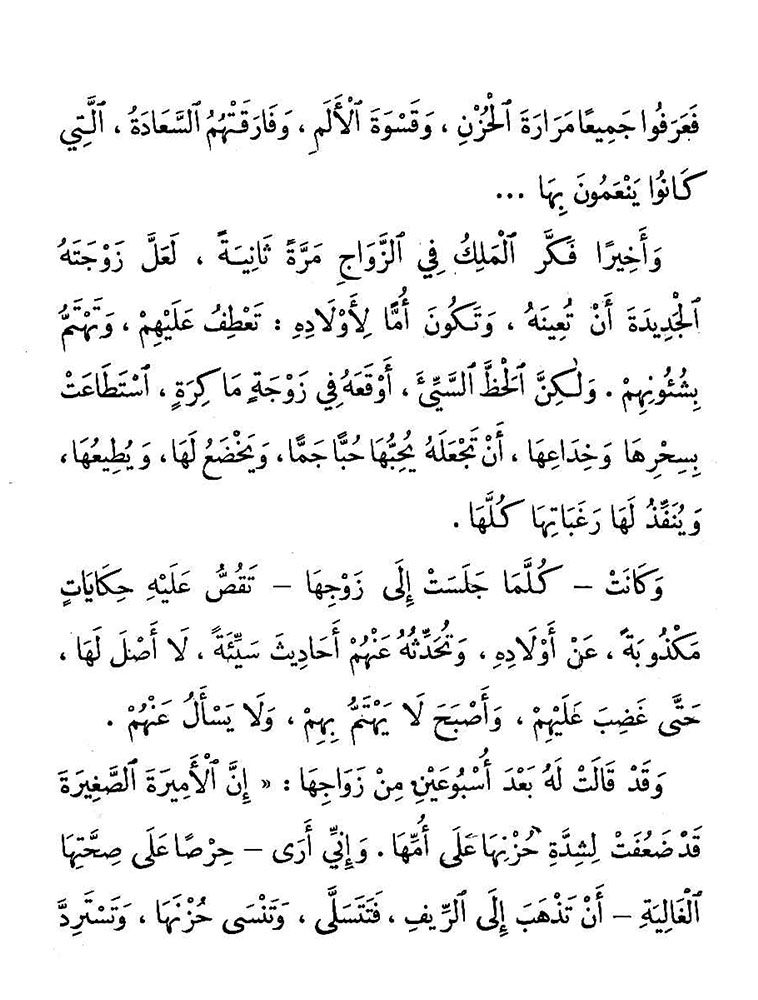 فَعَرَفُوا جَمِيعًا مَرَارَةَ ٱلْحُزْنِ ، وَقَسْوَةَ ٱلْأَلَمِ ، وَفَارَقَتْهُمُ ٱلسَّعَادَةُ ، ٱلَّتِي
كَانُوا يَنْعَمُونَ بِهَا ...
وَأَخِيرًا فَكَّرَ ٱلْمَلِكُ فِي ٱلزَّوَاجِ مَرَّةً ثَانِيَةً ، لَعَلَّ زَوْجَتَهُ
ٱلْجَدِيدَةَ أَنْ تُعِينَهُ ، وَتَكُونَ أُمًّا لِأَوْلَادِهِ : تَعْطِفُ عَلَيْهِمْ ، وَتَهْتَمُّ
بِشُئُونِهِمْ . وَلٰكِنَّ ٱلْحَظَّ ٱلسَّيِّئَ ، أَوْقَعَهُ فِي زَوْجَةٍ مَاكِرَةٍ ، ٱسْتَطَاعَتْ
بِسِحْرِهَا وَخِدَاعِهَا ، أَنْ تَجْعَلَهُ يُحِبُّهَا حُبًّا جَمًّا ، وَيَخْضَعُ لَهَا ، وَيُطِيعُهَا ،
وَيُنَفِّذُ لَهَا رَغَبَاتِهَا كُلَّهَا .
وَكَانَتْ – كُلَّمَا جَلَسَتْ إِلَى زَوْجِهَا – تَقُصُّ عَلَيْهِ حِكَايَاتٍ
مَكْذُوبَةً ، عَنْ أَوْلَادِهِ ، وَتُحَدِّثُهُ عَنْهُمْ أَحَادِيثَ سَيِّئَةً ، لَا أَصْلَ لَهَا ،
حَتَّى غَضِبَ عَلَيْهِمْ ، وَأَصْبَحَ لَا يَهْتَمُّ بِهِمْ ، وَلَا يَسْأَلُ عَنْهُمْ .
وَقَدْ قَالَتْ لَهُ بَعْدَ أُسْبُوعَيْنِ مِنْ زَوَاجِهَا : « إِنَّ ٱلْأَمِيرَةَ ٱلصَّغِيرَةَ
قَدْ ضَعُفَتْ لِشِدَّةِ حُزْنِهَا عَلَى أُمِّهَا . وَإِنِّي أَرَى – حِرْصًا عَلَى صِحَّتِهَا
ٱلْغَالِيَةِ – أَنْ تَذْهَبَ إِلَى ٱلرِّيفِ ، فَتَتَسَلَّى ، وَتَنْسَى حُزْنَهَا ، وَتَسْتَرِدَّ